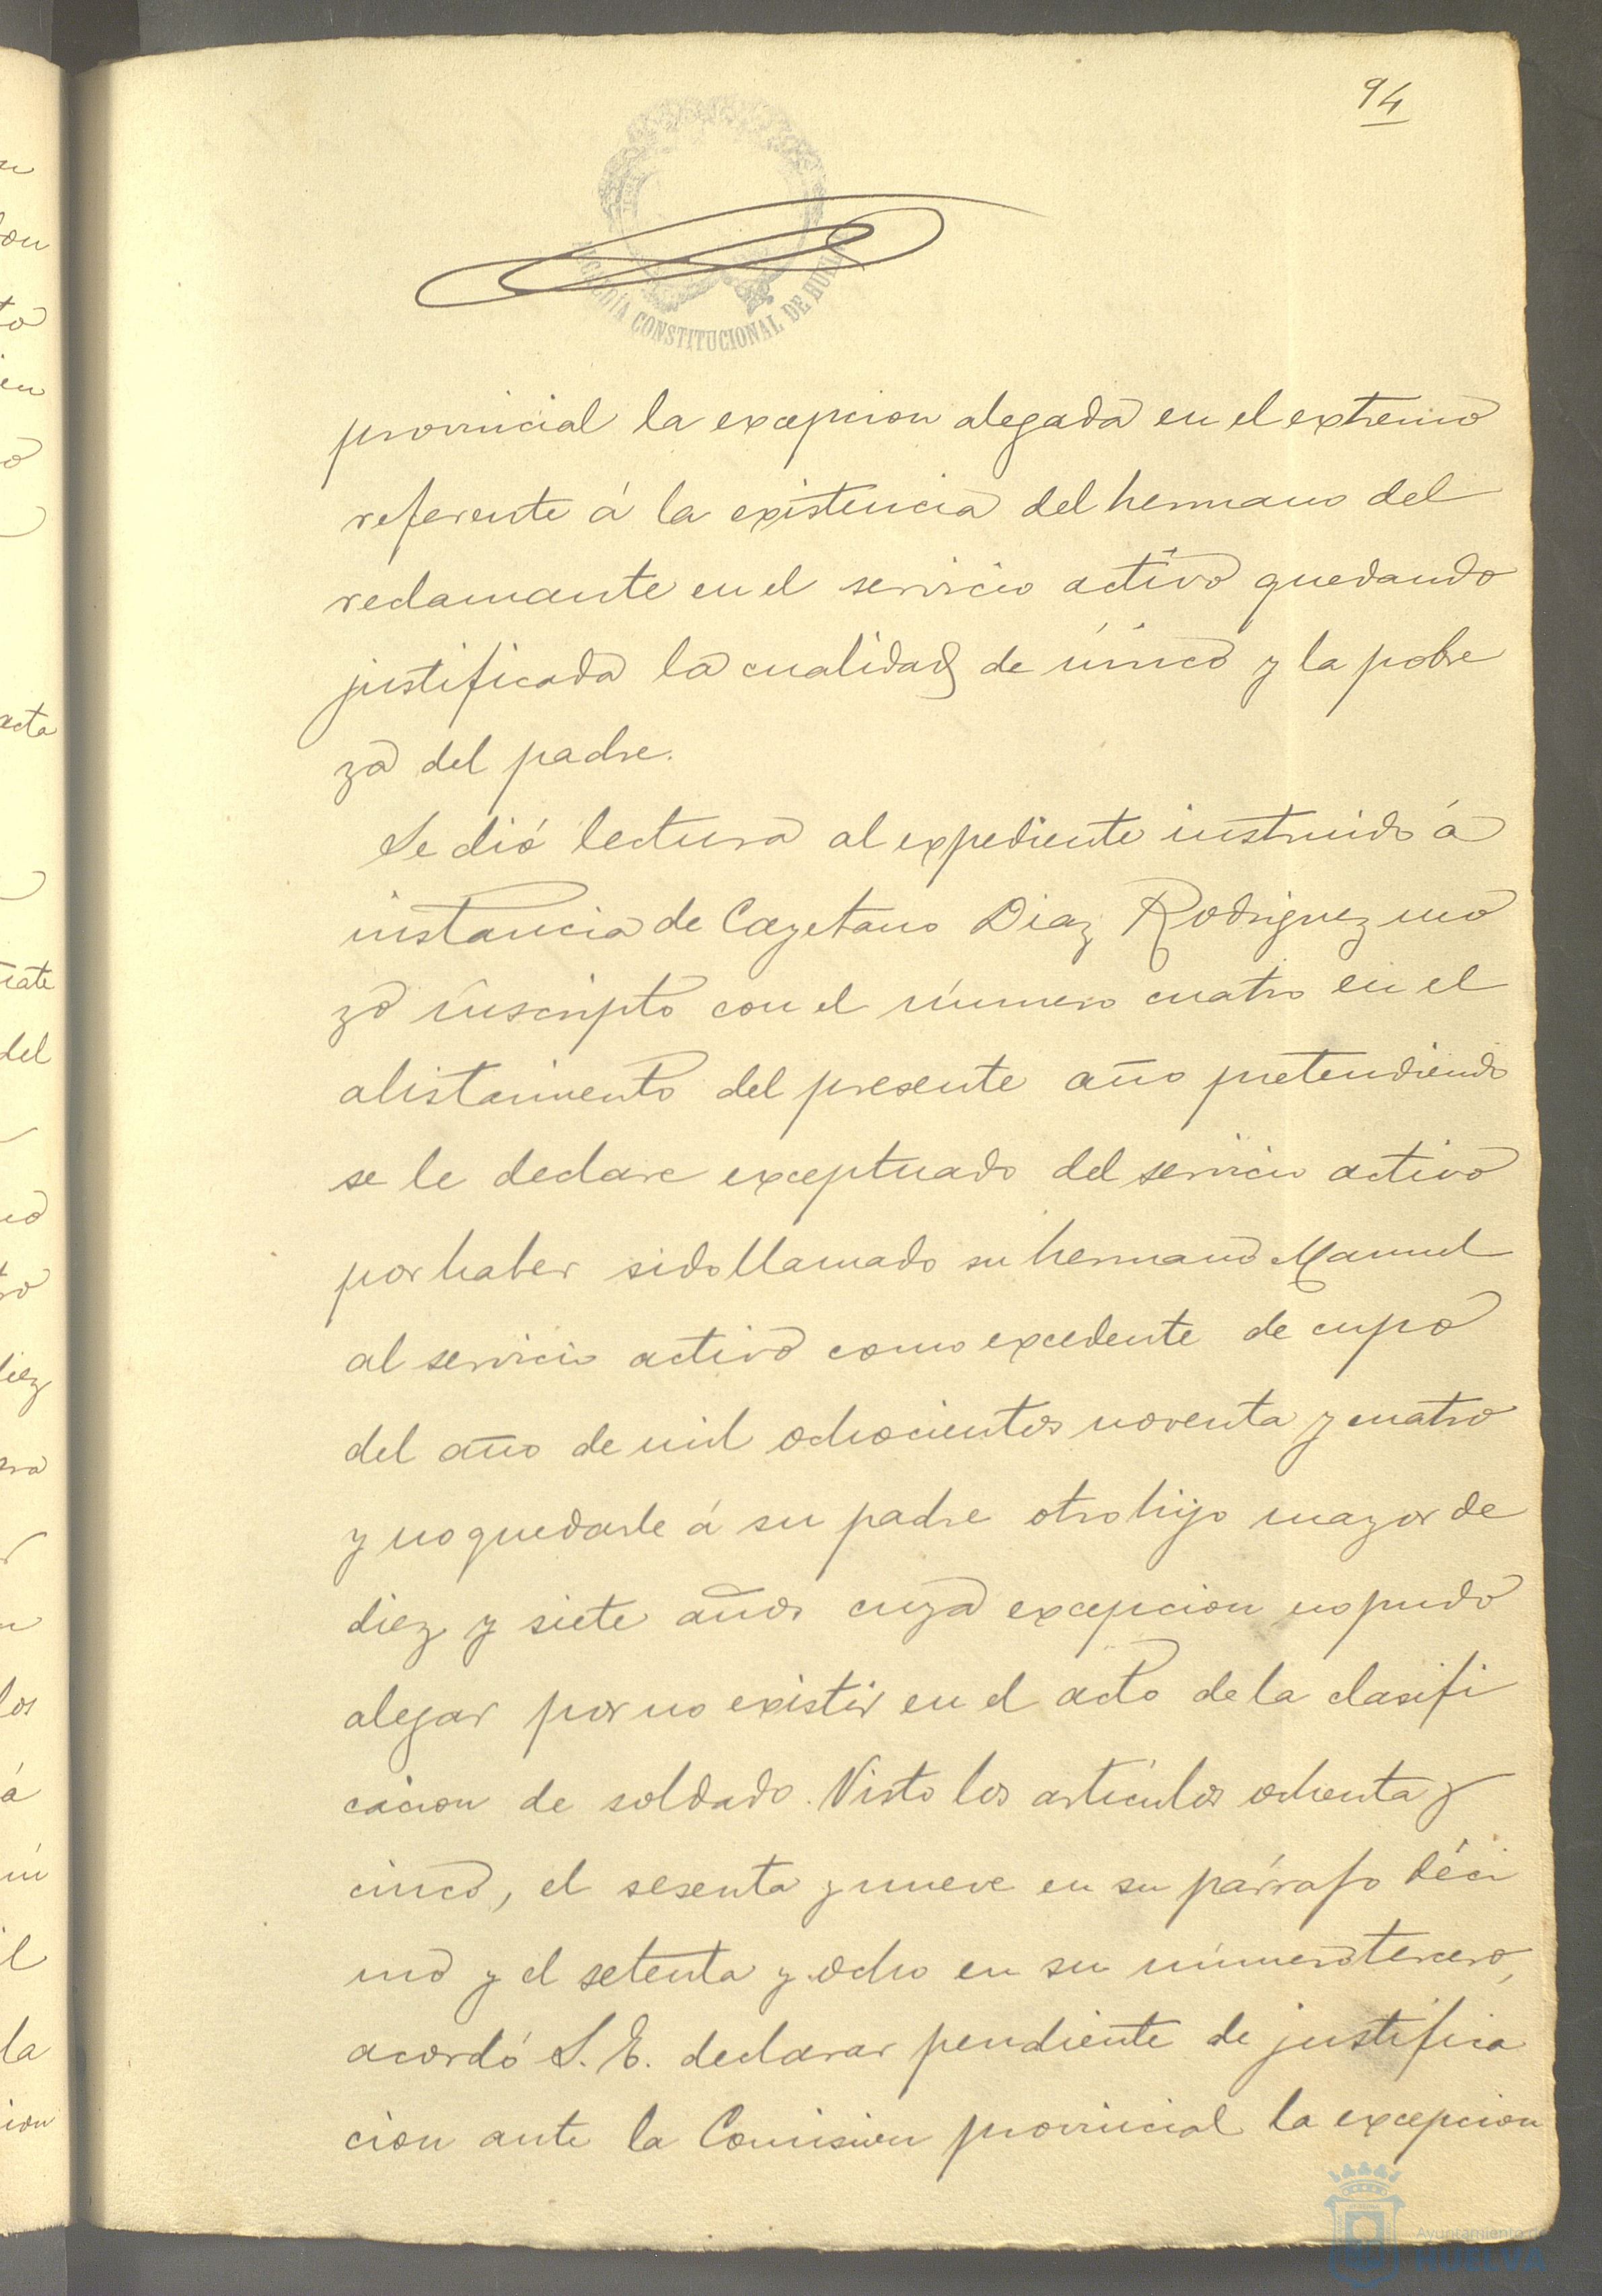 94
ALCALDÍA CONSTITUCIONAL DE HUELVA
provincial la excepcion alegada en el extremo
referente á la existencia del hermano del
reclamante en el servicio activo quedando
justificada la cualidad de único y la pobre
za del padre.
Se dió lectura al expediente instruido á
instancia de Cayetano Diaz Rodriguez mo
zo inscripto con el número cuatro en el
alistamiento del presente año pretendiendo
se le declare exceptuado del servicio activo
por haber sido llamado su hermano Manuel
al servicio activo como excedente de cupo
del año de mil ochocientos noventa y cuatro
y no quedarle á su padre otro hijo mayor de
diez y siete años cuya excepcion no pudo
alegar por no existir en el acto de la clasifi
cacion de soldado. Visto los artículos ochenta y
cinco, el sesenta y nueve en su párrafo déci
mo y el setenta y ocho en su número tercero,
acordó S. E. declarar pendiente de justifica
cion ante la Comision provincial la excepcion
Ayuntamiento de
HUELVA